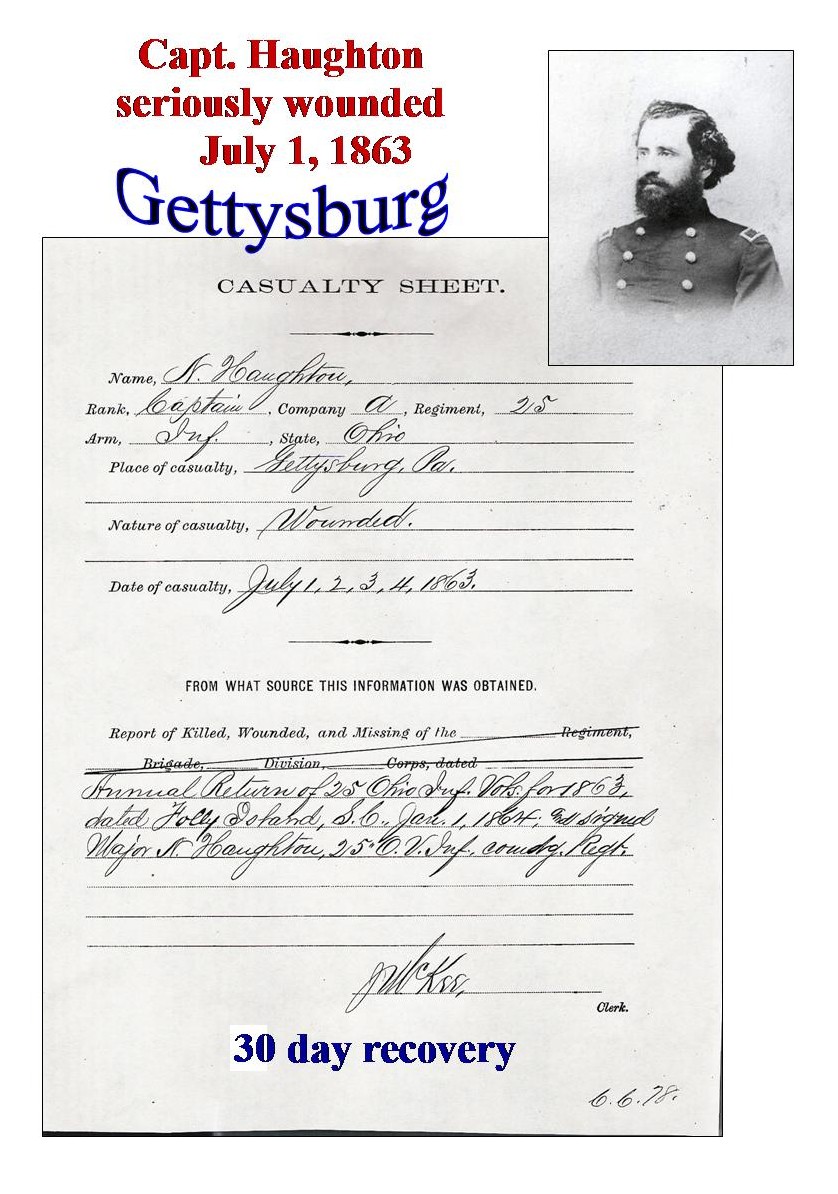 Capt. Haughton
seriously wounded
July 1, 1863
Gettysburg
CASUALTY SHEET.
Name, N. Haughton,
Rank, Captain, Company A, Regiment, 25
Arm, Inf., State, Ohio
Place of casualty, Gettysburg, Pa.
Nature of casualty, Wounded.
Date of casualty, July 1, 2, 3, 4, 1863.
FROM WHAT SOURCE THIS INFORMATION WAS OBTAINED.
Report of Killed, Wounded, and Missing of the Regiment,
Brigade, Division, Corps, dated
Annual Return of 25 Ohio Inf. Vols. for 1863,
dated Folly Island, S.C., Jan. 1, 1864, signed
Major N. Haughton, 25" O. V. Inf. comdg. Regt.
J McKee,
Clerk.
30 day recovery
6.6.78.